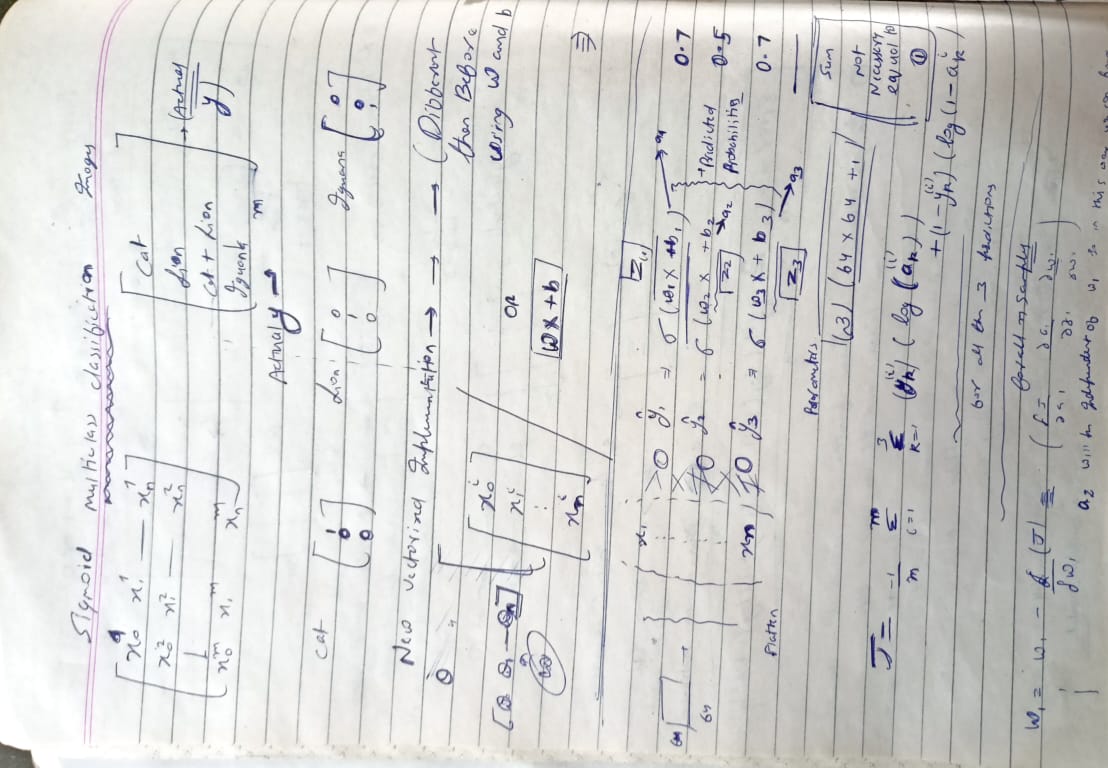 Sigmoid multiclass classification Images
x₀¹ x₁¹ — xₙ¹
x₀² x₁² — xₙ²
x₀ᵐ x₁ᵐ xₙᵐ
Cat
Lion
Cat + Lion
Iguana
m
→ (Actual y)
Actual y →
Cat [1 0 0] Lion [0 1 0] Iguana [0 0 1]
New vectorized Implementation → → → (Different
then Before
using w and b
θ
[θ θ₁ — θₙ]
w
x₀ⁱ
x₁ⁱ
⋮
xₙⁱ
OR
wx + b
⇒
64
64
Flatten
x₁
xₙ
z₁
ŷ₁ = σ(w₁x + b₁) → a₁
ŷ₂ = σ(w₂x + b₂
z₂ → a₂
ŷ₃ = σ(w₃x + b₃)
z₃ → a₃
→ Predicted
Probabilities
0.7
0.5
0.7
Sum
Not
Necessary
equal to
①
Parameters
(3) (64 × 64 + 1)
J = -1/m Σ i=1 m Σ k=1 3 (yₖ⁽ⁱ⁾) (log (aₖ⁽ⁱ⁾))
+ (1 - yₖ⁽ⁱ⁾) (log (1 - aₖⁱ)
for all the 3 predictions
for all n samples
w₁ = w₁ - ∂/∂w₁ (J) = (∂J/∂a₁ ∂a₁/∂z₁ ∂w₁/∂w₁)
a₂ will be Independent of w₁ so in this way